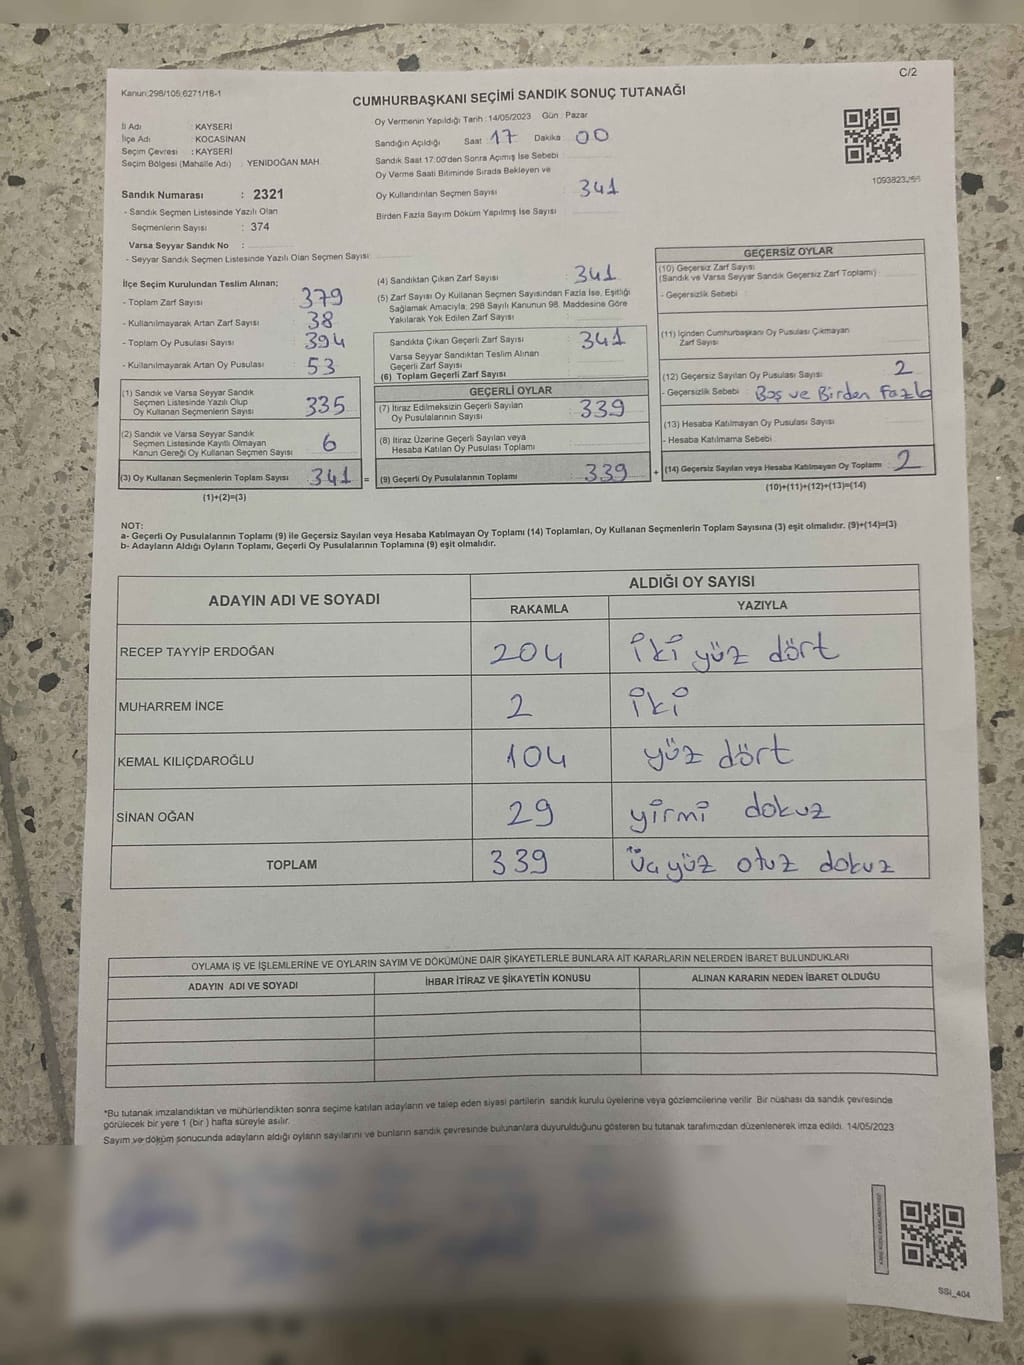 Kanun:298/105,6271/18-1
C/2
CUMHURBAŞKANI SEÇİMİ SANDIK SONUÇ TUTANAĞI
İl Adı : KAYSERİ
İlçe Adı : KOCASİNAN
Seçim Çevresi : KAYSERİ
Seçim Bölgesi (Mahalle Adı) : YENİDOĞAN MAH.
Sandık Numarası : 2321
- Sandık Seçmen Listesinde Yazılı Olan
Seçmenlerin Sayısı : 374
Varsa Seyyar Sandık No :
- Seyyar Sandık Seçmen Listesinde Yazılı Olan Seçmen Sayısı:
Oy Vermenin Yapıldığı Tarih : 14/05/2023 Gün : Pazar
Sandığın Açıldığı Saat : 17 Dakika : 00
Sandık Saat 17:00'den Sonra Açımış İse Sebebi :
Oy Verme Saati Bitiminde Sırada Bekleyen ve
Oy Kullandırılan Seçmen Sayısı : 341
Birden Fazla Sayım Döküm Yapılmış İse Sayısı
İlçe Seçim Kurulundan Teslim Alınan;
- Toplam Zarf Sayısı : 379
- Kullanılmayarak Artan Zarf Sayısı : 38
- Toplam Oy Pusulası Sayısı : 394
- Kullanılmayarak Artan Oy Pusulası : 53
(1) Sandık ve Varsa Seyyar Sandık
Seçmen Listesinde Yazılı Olup
Oy Kullanan Seçmenlerin Sayısı : 335
(2) Sandık ve Varsa Seyyar Sandık
Seçmen Listesinde Kayıtlı Olmayan
Kanun Gereği Oy Kullanan Seçmen Sayısı : 6
(3) Oy Kullanan Seçmenlerin Toplam Sayısı : 341 =
(1)+(2)=(3)
(4) Sandıktan Çıkan Zarf Sayısı : 341
(5) Zarf Sayısı Oy Kullanan Seçmen Sayısından Fazla İse, Eşitliği
Sağlamak Amacıyla; 298 Sayılı Kanunun 98. Maddesine Göre
Yakılarak Yok Edilen Zarf Sayısı :
Sandıkta Çıkan Geçerli Zarf Sayısı : 341
Varsa Seyyar Sandıktan Teslim Alınan
Geçerli Zarf Sayısı :
(6) Toplam Geçerli Zarf Sayısı :
GEÇERLİ OYLAR
(7) İtiraz Edilmeksizin Geçerli Sayılan
Oy Pusulalarının Sayısı : 339
(8) İtiraz Üzerine Geçerli Sayılan veya
Hesaba Katılan Oy Pusulası Toplamı :
(9) Geçerli Oy Pusulalarının Toplamı : 339 +
GEÇERSİZ OYLAR
(10) Geçersiz Zarf Sayısı
(Sandık ve Varsa Seyyar Sandık Geçersiz Zarf Toplamı) :
- Geçersizlik Sebebi :
(11) İçinden Cumhurbaşkanı Oy Pusulası Çıkmayan
Zarf Sayısı :
(12) Geçersiz Sayılan Oy Pusulası Sayısı : 2
- Geçersizlik Sebebi : Boş ve Birden Fazla
(13) Hesaba Katılmayan Oy Pusulası Sayısı :
- Hesaba Katılmama Sebebi :
(14) Geçersiz Sayılan veya Hesaba Katılmayan Oy Toplamı : 2
(10)+(11)+(12)+(13)=(14)
NOT:
a- Geçerli Oy Pusulalarının Toplamı (9) ile Geçersiz Sayılan veya Hesaba Katılmayan Oy Toplamı (14) Toplamları, Oy Kullanan Seçmenlerin Toplam Sayısına (3) eşit olmalıdır. (9)+(14)=(3)
b- Adayların Aldığı Oyların Toplamı, Geçerli Oy Pusulalarının Toplamına (9) eşit olmalıdır.
ADAYIN ADI VE SOYADI
ALDIĞI OY SAYISI
RAKAMLA YAZIYLA
RECEP TAYYİP ERDOĞAN 204 iki yüz dört
MUHARREM İNCE 2 iki
KEMAL KILIÇDAROĞLU 104 yüz dört
SİNAN OĞAN 29 yirmi dokuz
TOPLAM 339 üç yüz otuz dokuz
OYLAMA İŞ VE İŞLEMLERİNE VE OYLARIN SAYIM VE DÖKÜMÜNE DAİR ŞİKAYETLERLE BUNLARA AİT KARARLARIN NELERDEN İBARET BULUNDUKLARI
ADAYIN ADI VE SOYADI İHBAR İTİRAZ VE ŞİKAYETİN KONUSU ALINAN KARARIN NEDEN İBARET OLDUĞU
*Bu tutanak imzalandıktan ve mühürlendikten sonra seçime katılan adayların ve talep eden siyasi partilerin sandık kurulu üyelerine veya gözlemcilerine verilir. Bir nüshası da sandık çevresinde
görülecek bir yere 1 (bir ) hafta süreyle asılır.
Sayım ve döküm sonucunda adayların aldığı oyların sayılarını ve bunların sandık çevresinde bulunanlara duyurulduğunu gösteren bu tutanak tarafımızdan düzenlenerek imza edildi. 14/05/2023
SSİ_404